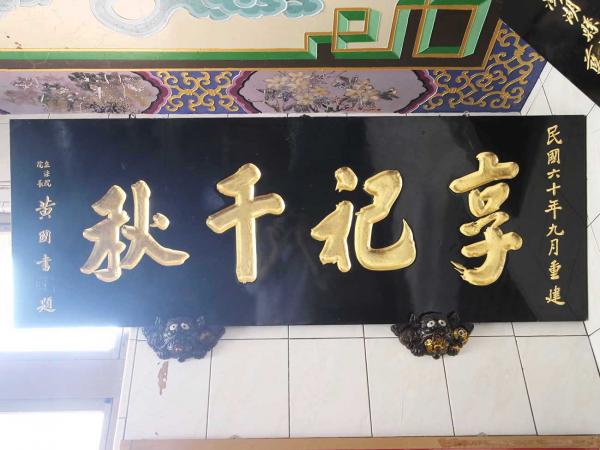 民國六十年九月重建
享祀千秋
立法院
院長
黃國書題
湖縣